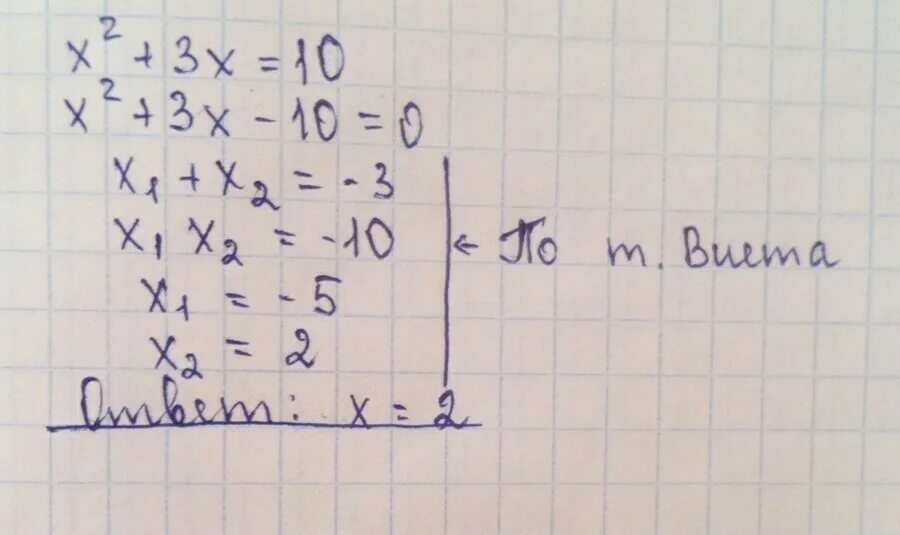 x² + 3x = 10
x² + 3x - 10 = 0
x₁ + x₂ = -3
x₁ x₂ = -10
← По т. Виета
x₁ = -5
x₂ = 2
Ответ: x = 2